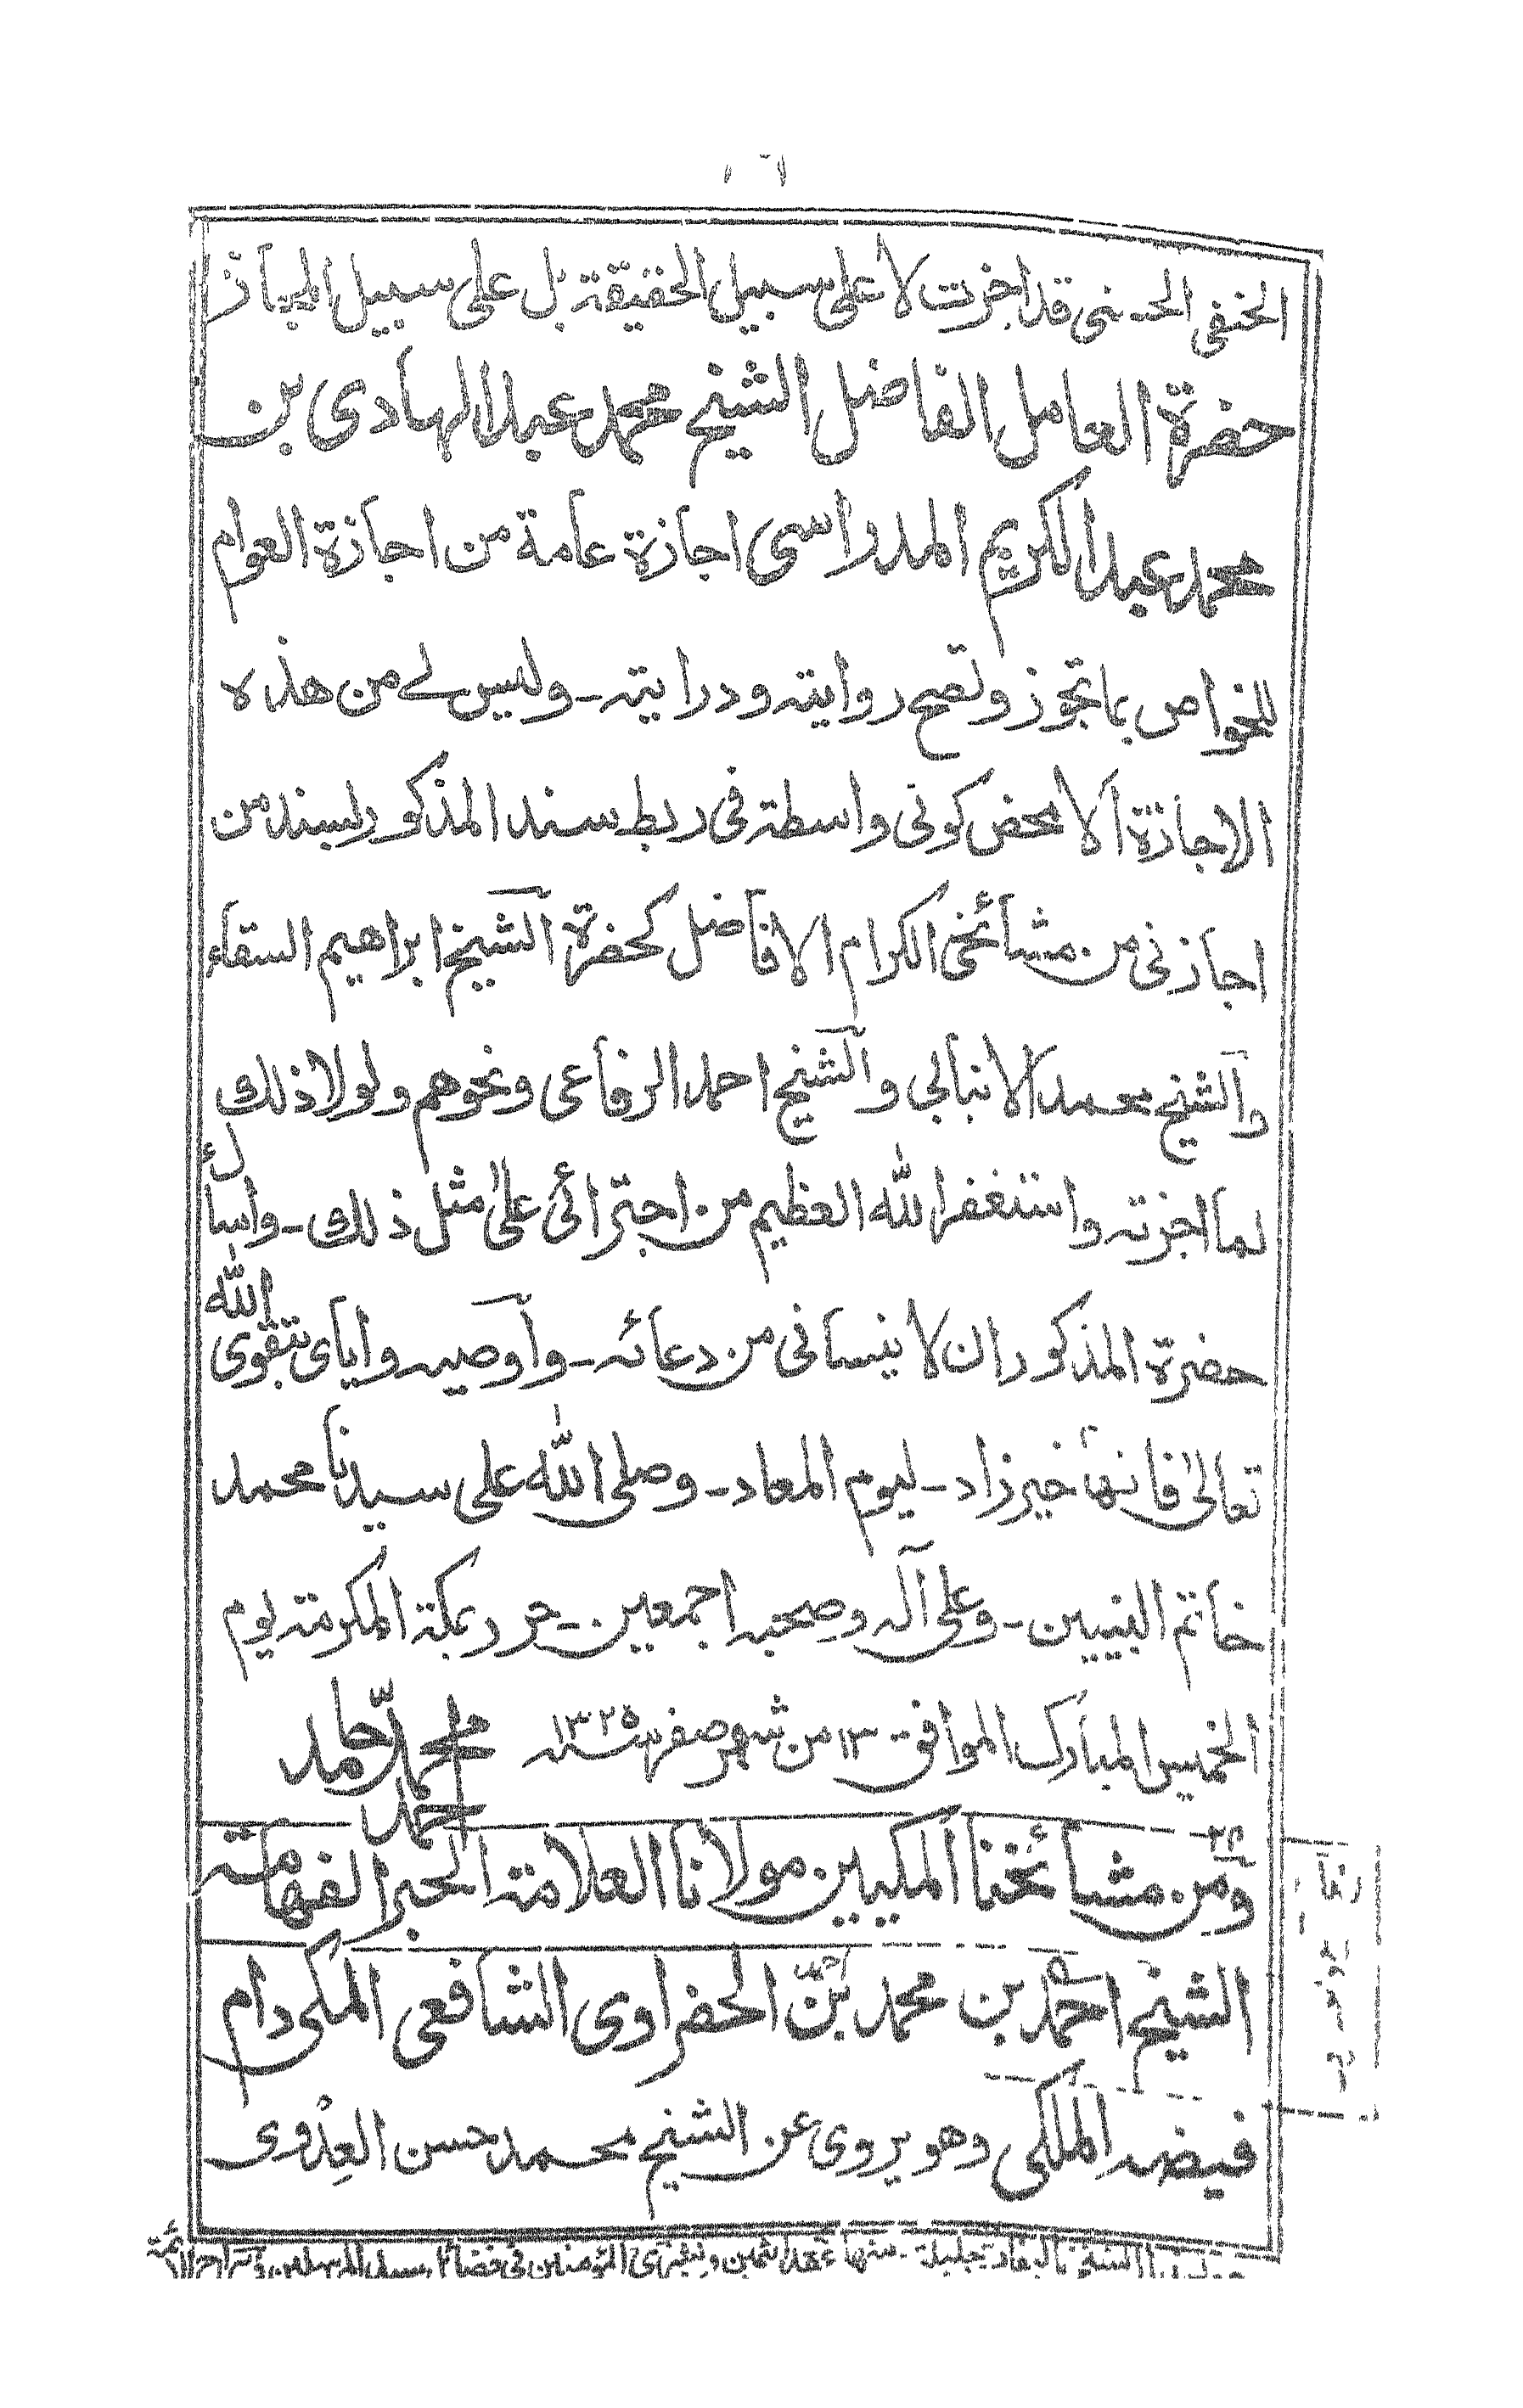 الحنفى الحسنى قد اجزت لا على سبيل الحقيقة بل على سبيل المجاز
حضرة العامل الفاضل الشيخ محمد عبد الهادى بن
محمد عبد الكريم المدراسى اجازة عامة من اجازة العوام
للخواص بما تجوز وتصح روايته ودرايته ـ وليس لے من هذه
الاجازة الا محض كونى واسطة فى ربط سند المذكور بسند من
اجازنى من مشائخى الكرام الافاضل كحضرة الشيخ ابراهيم السقاء
والشيخ محمد الانبابى والشيخ احمد الرفاعى ونحوهم ولولا ذلك
لما اجزته واستغفر الله العظيم من اجترائى على مثل ذلك ـ واسأل
حضرة المذكور ان لا ينسانى من دعائه ـ وأوصيه واياى بتقوى الله
تعالى فانها خير زاد ـ ليوم المعاد ـ وصلى الله على سيدنا محمد
خاتم النبيين ـ وعلى آله وصحبه اجمعين ـ حرر بمكة المكرمة يوم
الخميس المبارك الموافق ١٣ من شهر صفر سنه ١٣٢٥ محمد حامد
احمد
ومن مشائخنا المكيين مولانا العلامة الحبر الفهامة
الشيخ احمد بن محمد بن احمد الحضراوى الشافعى المكى دام
فيضه الملكى وهو يروى عن الشيخ محمد حسن العِدْوى